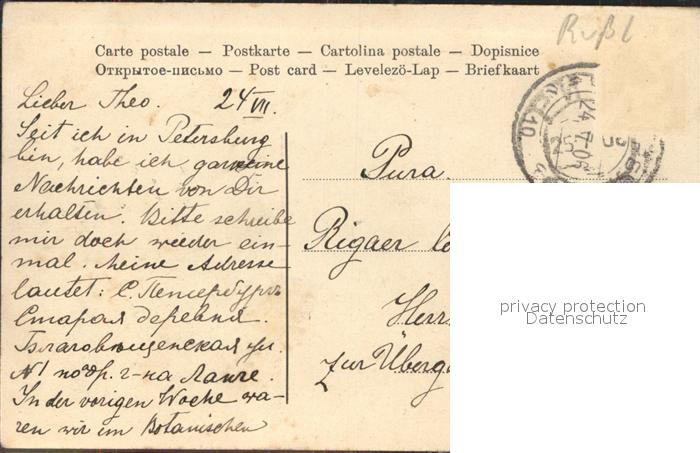 Rußl
Carte postale — Postkarte — Cartolina postale — Dopisnice
Открытое-письмо — Post card — Levelezö-Lap — Briefkaart
Lieber Theo. 24/VII.
Seit ich in Petersburg
bin, habe ich gar keine
Nachrichten von Dir
erhalten. Bitte schreibe
mir doch wieder ein-
mal. Meine Adresse
lautet: С. Петербургъ
Старая деревня.
Благовѣщенская ул.
№1 подр. г-на Ланге.
In der vorigen Woche wa-
ren wir im Botanischen
Pura.
Rigaer
Herrn
zur Überga
privacy protection
Datenschutz